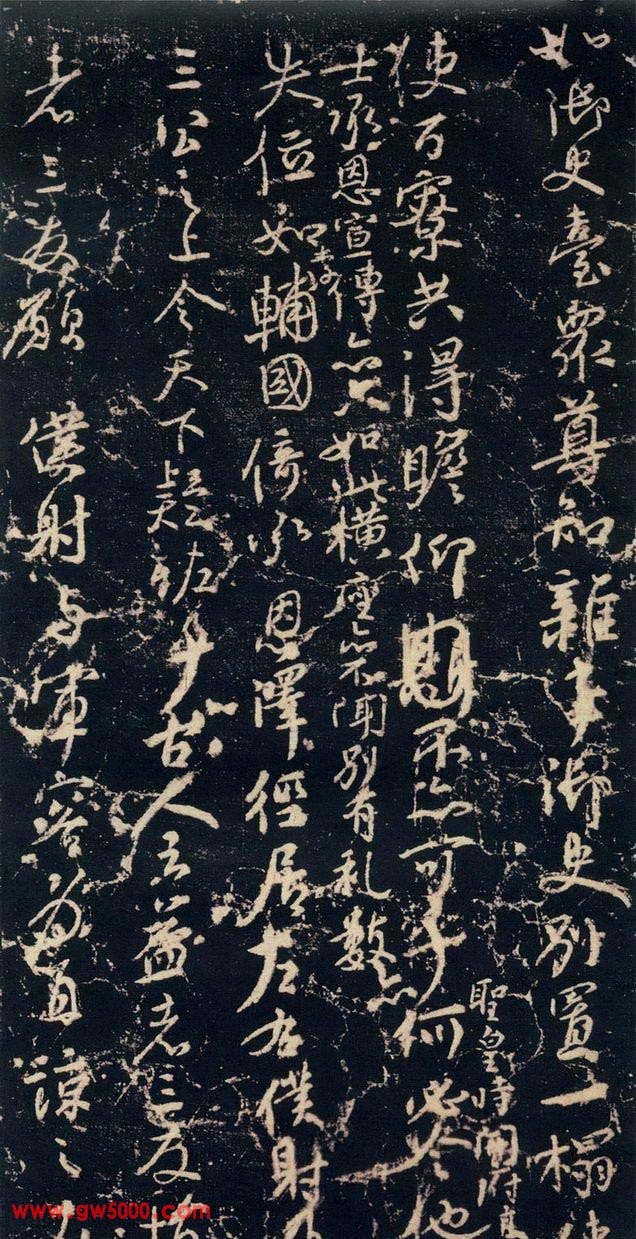 如御史臺眾尊知雜事御史別置一榻
使百寮共得瞻仰不亦可乎何必令他
聖皇時開府高
士承恩宣傳亦只如此橫座亦不聞別有礼數亦
失位如李輔國倚承恩澤徑居左右僕射
三公之上令天下疑怪乎古人云益者三友損
者三友願僕射与軍容為直諒之友
www.gw5000.com